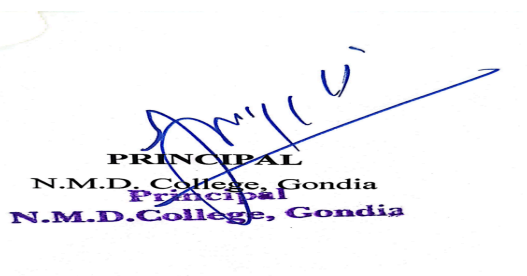 PRINCIPAL
N.M.D. College, Gondia
Principal
N.M.D.College, Gondia